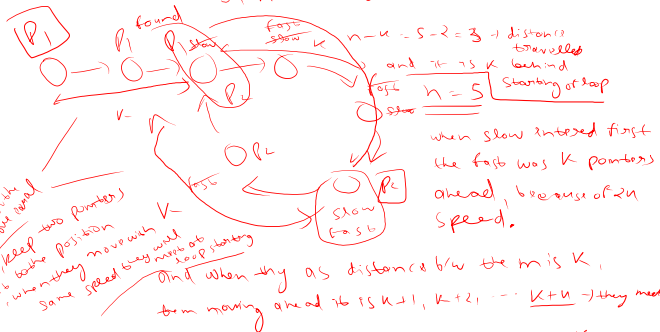 P1
found
P1
P1 slow
fast
slow
K
n-k = 5-2 = 3 → distance
travelled
and it is K behind
starting of loop
fast
slow
n = 5
P2
K
when slow intered first
the fast was K pointers
ahead, because of 2x
speed.
P2
fast
P2
slow
fast
K
the
keep two pointers
to the position
when they move with
same speed they will
meet at
loop starting
and when thy as distance b/w them is K,
them moving ahead it is K+1, K+2, ... K+n → they meet